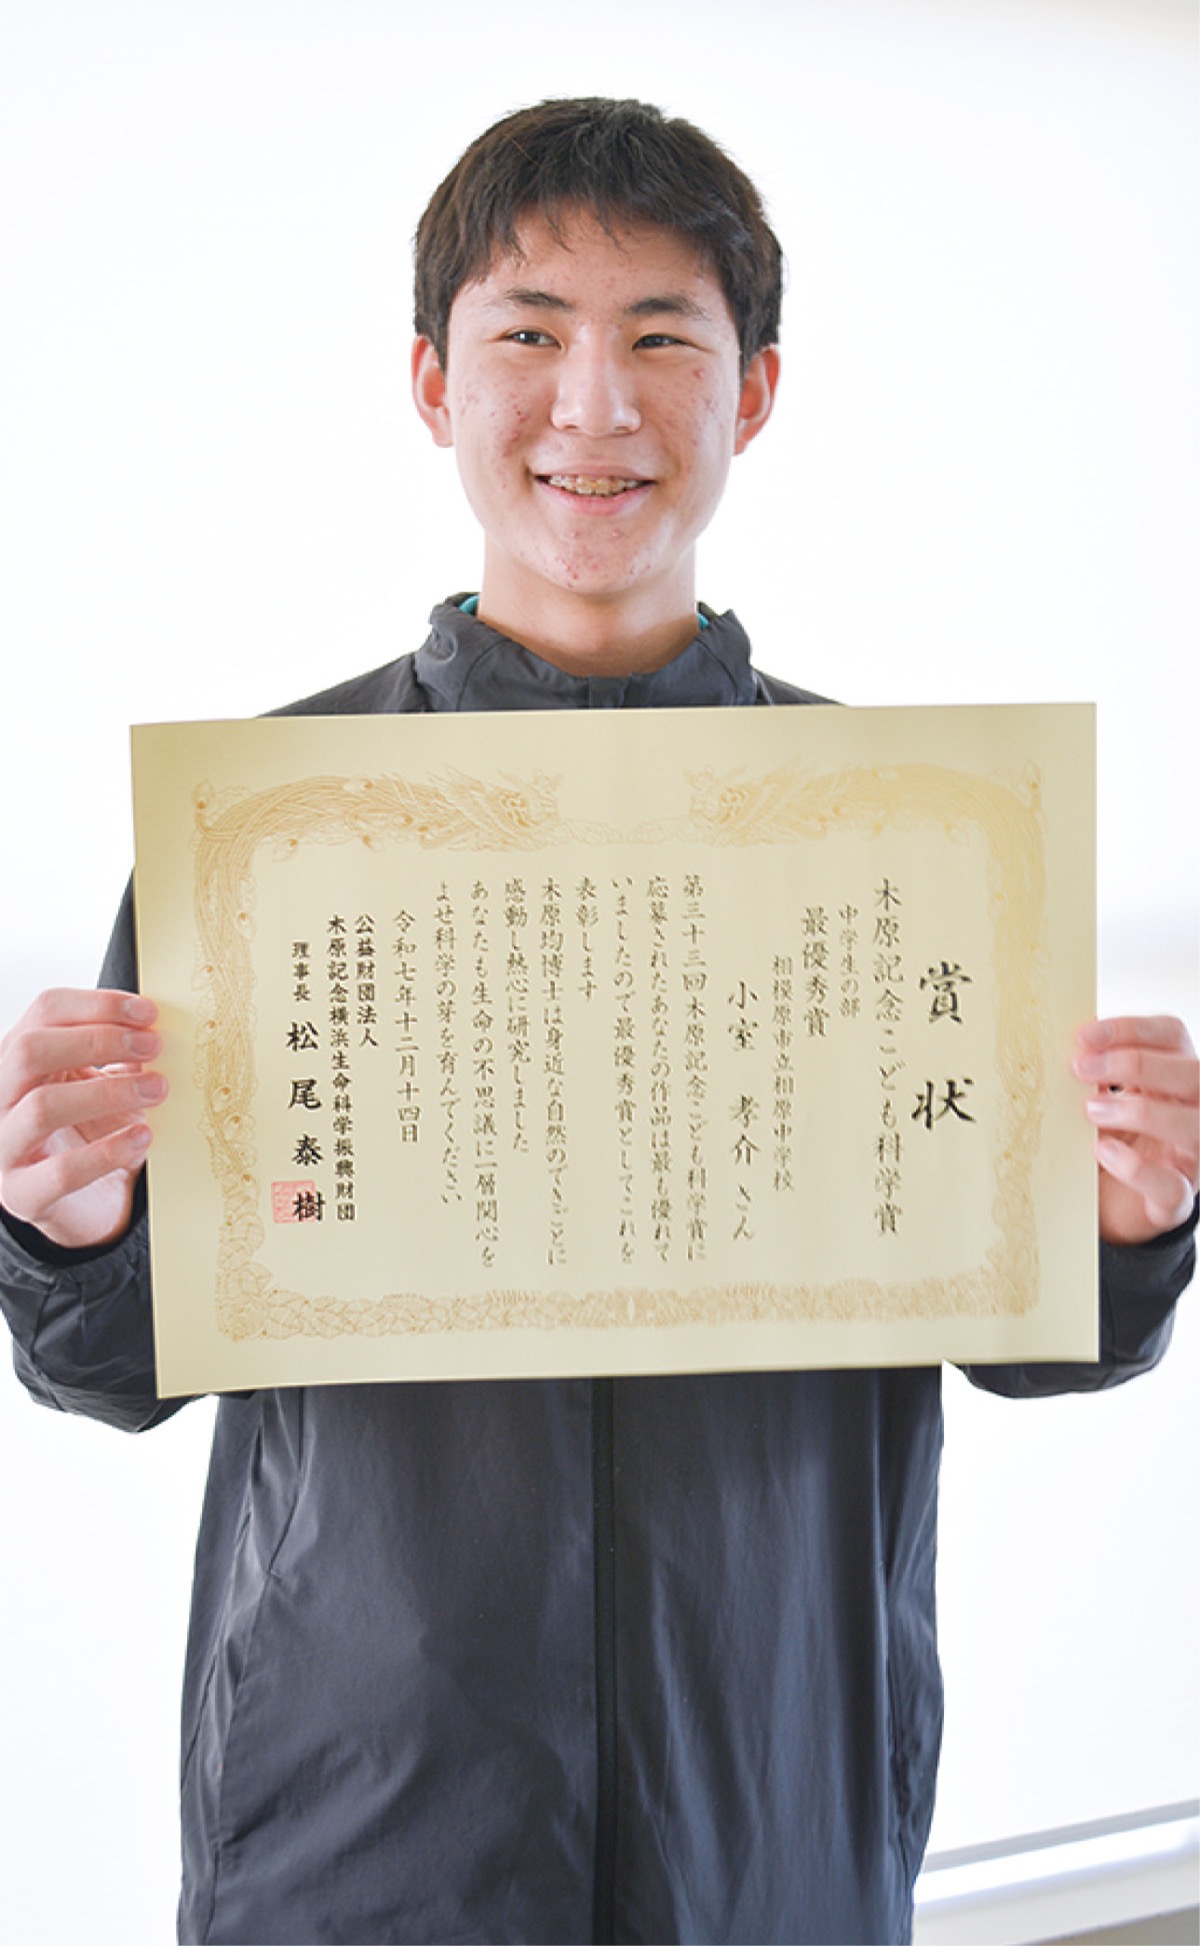 賞状
木原記念こども科学賞
中学生の部
最優秀賞
相模原市立相原中学校
小室 孝介 さん
第三十三回木原記念こども科学賞に
応募されたあなたの作品は最も優れて
いましたので最優秀賞としてこれを
表彰します
木原均博士は身近な自然のできごとに
感動し熱心に研究しました
あなたも生命の不思議に一層関心を
よせ科学の芽を育んでください
令和七年十二月十四日
公益財団法人
木原記念横浜生命科学振興財団
理事長 松尾泰樹